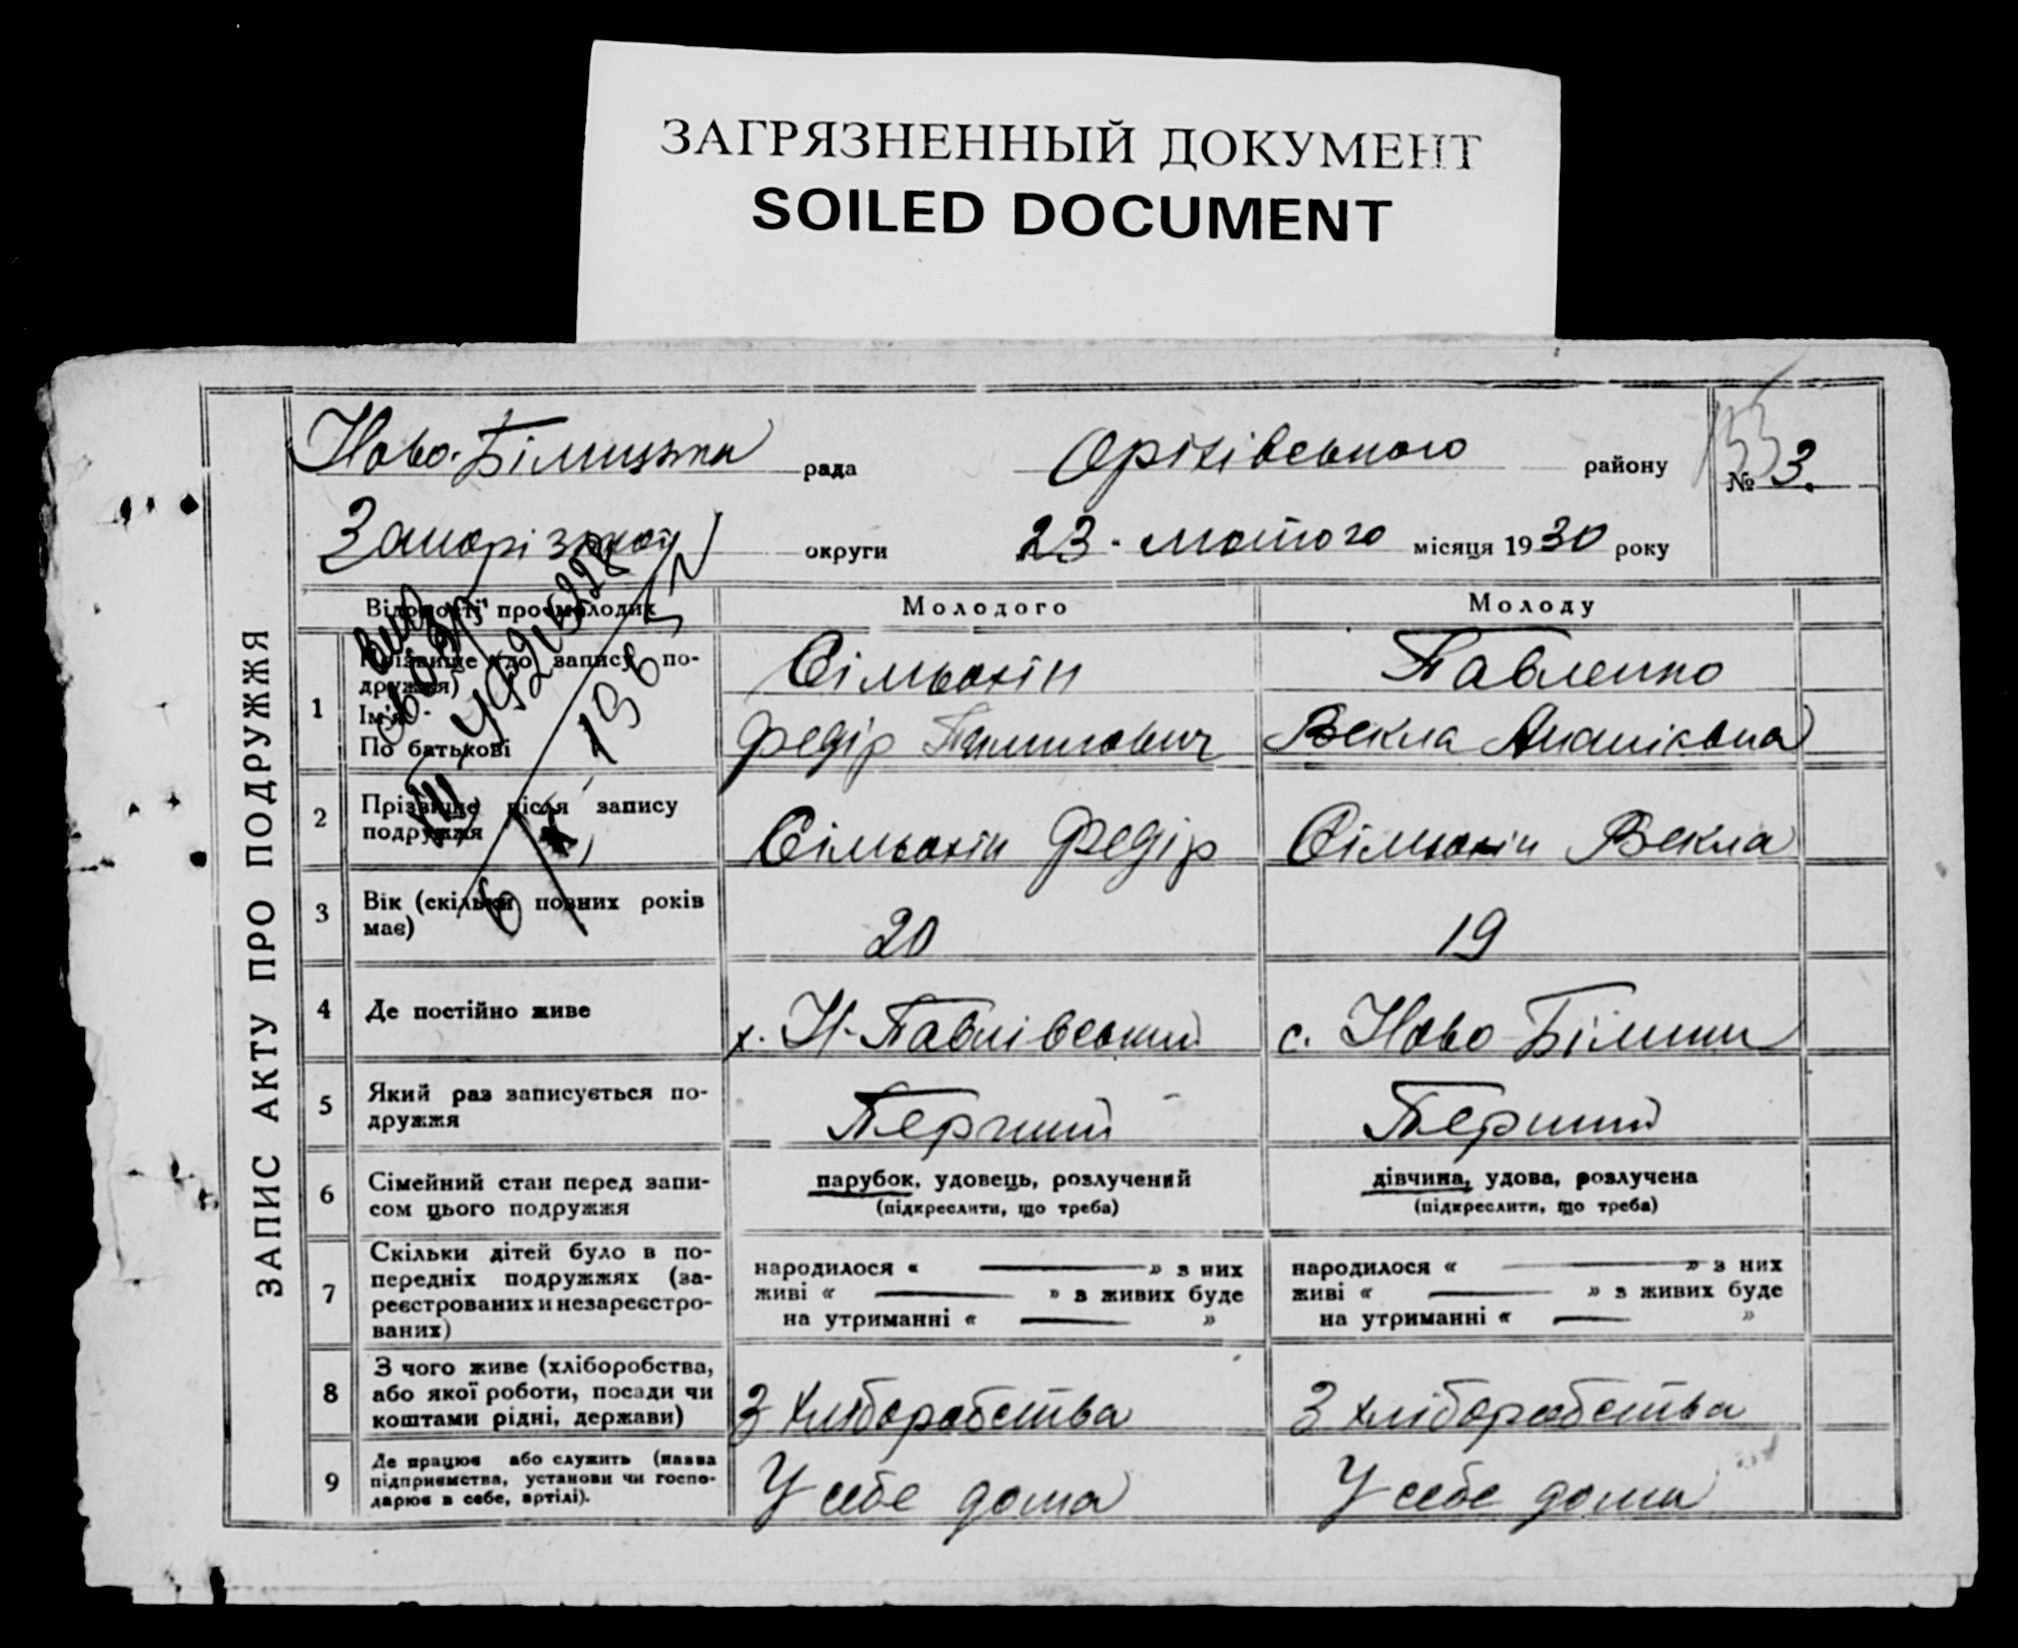 ЗАГРЯЗНЕННЫЙ ДОКУМЕНТ
SOILED DOCUMENT
ЗАПИС АКТУ ПРО ПОДРУЖЖЯ
Ново-Білицька рада Оріхівського району № 3.
Запорізької округи 23 - лютого місяця 1930 року
Відомості про молодих Молодого Молоду
1 Прізвище (до запису подружжя) Сільохін Павленко
Ім'я
По батькові Федір Векла
2 Прізвище після запису Сільохін Федір Сільохін Векла
подружжя
3 Вік (скільки повних років
має) 20 19
4 Де постійно живе х. Н-Павлівський с. Ново
5 Який раз записується по-
дружжя Перший Перший
6 Сімейний стан перед запи- парубок, удовець, розлучений дівчина, удова, розлучена
сом цього подружжя (підкреслити, що треба) (підкреслити, що треба)
7 Скільки дітей було в по-
передніх подружжях (за- народилося « » з них народилося « » з них
реєстрованих и незареєстро- живі « » з живих буде живі « » з живих буде
ваних) на утриманні « » на утриманні « »
8 З чого живе (хліборобства,
або якої роботи, посади чи
коштами рідні, держави) З хліборобства З хліборобства
9 Де працює або служить (назва
підприємства, установи чи госпо-
дарює в себе, артілі). У себе дома У себе дома